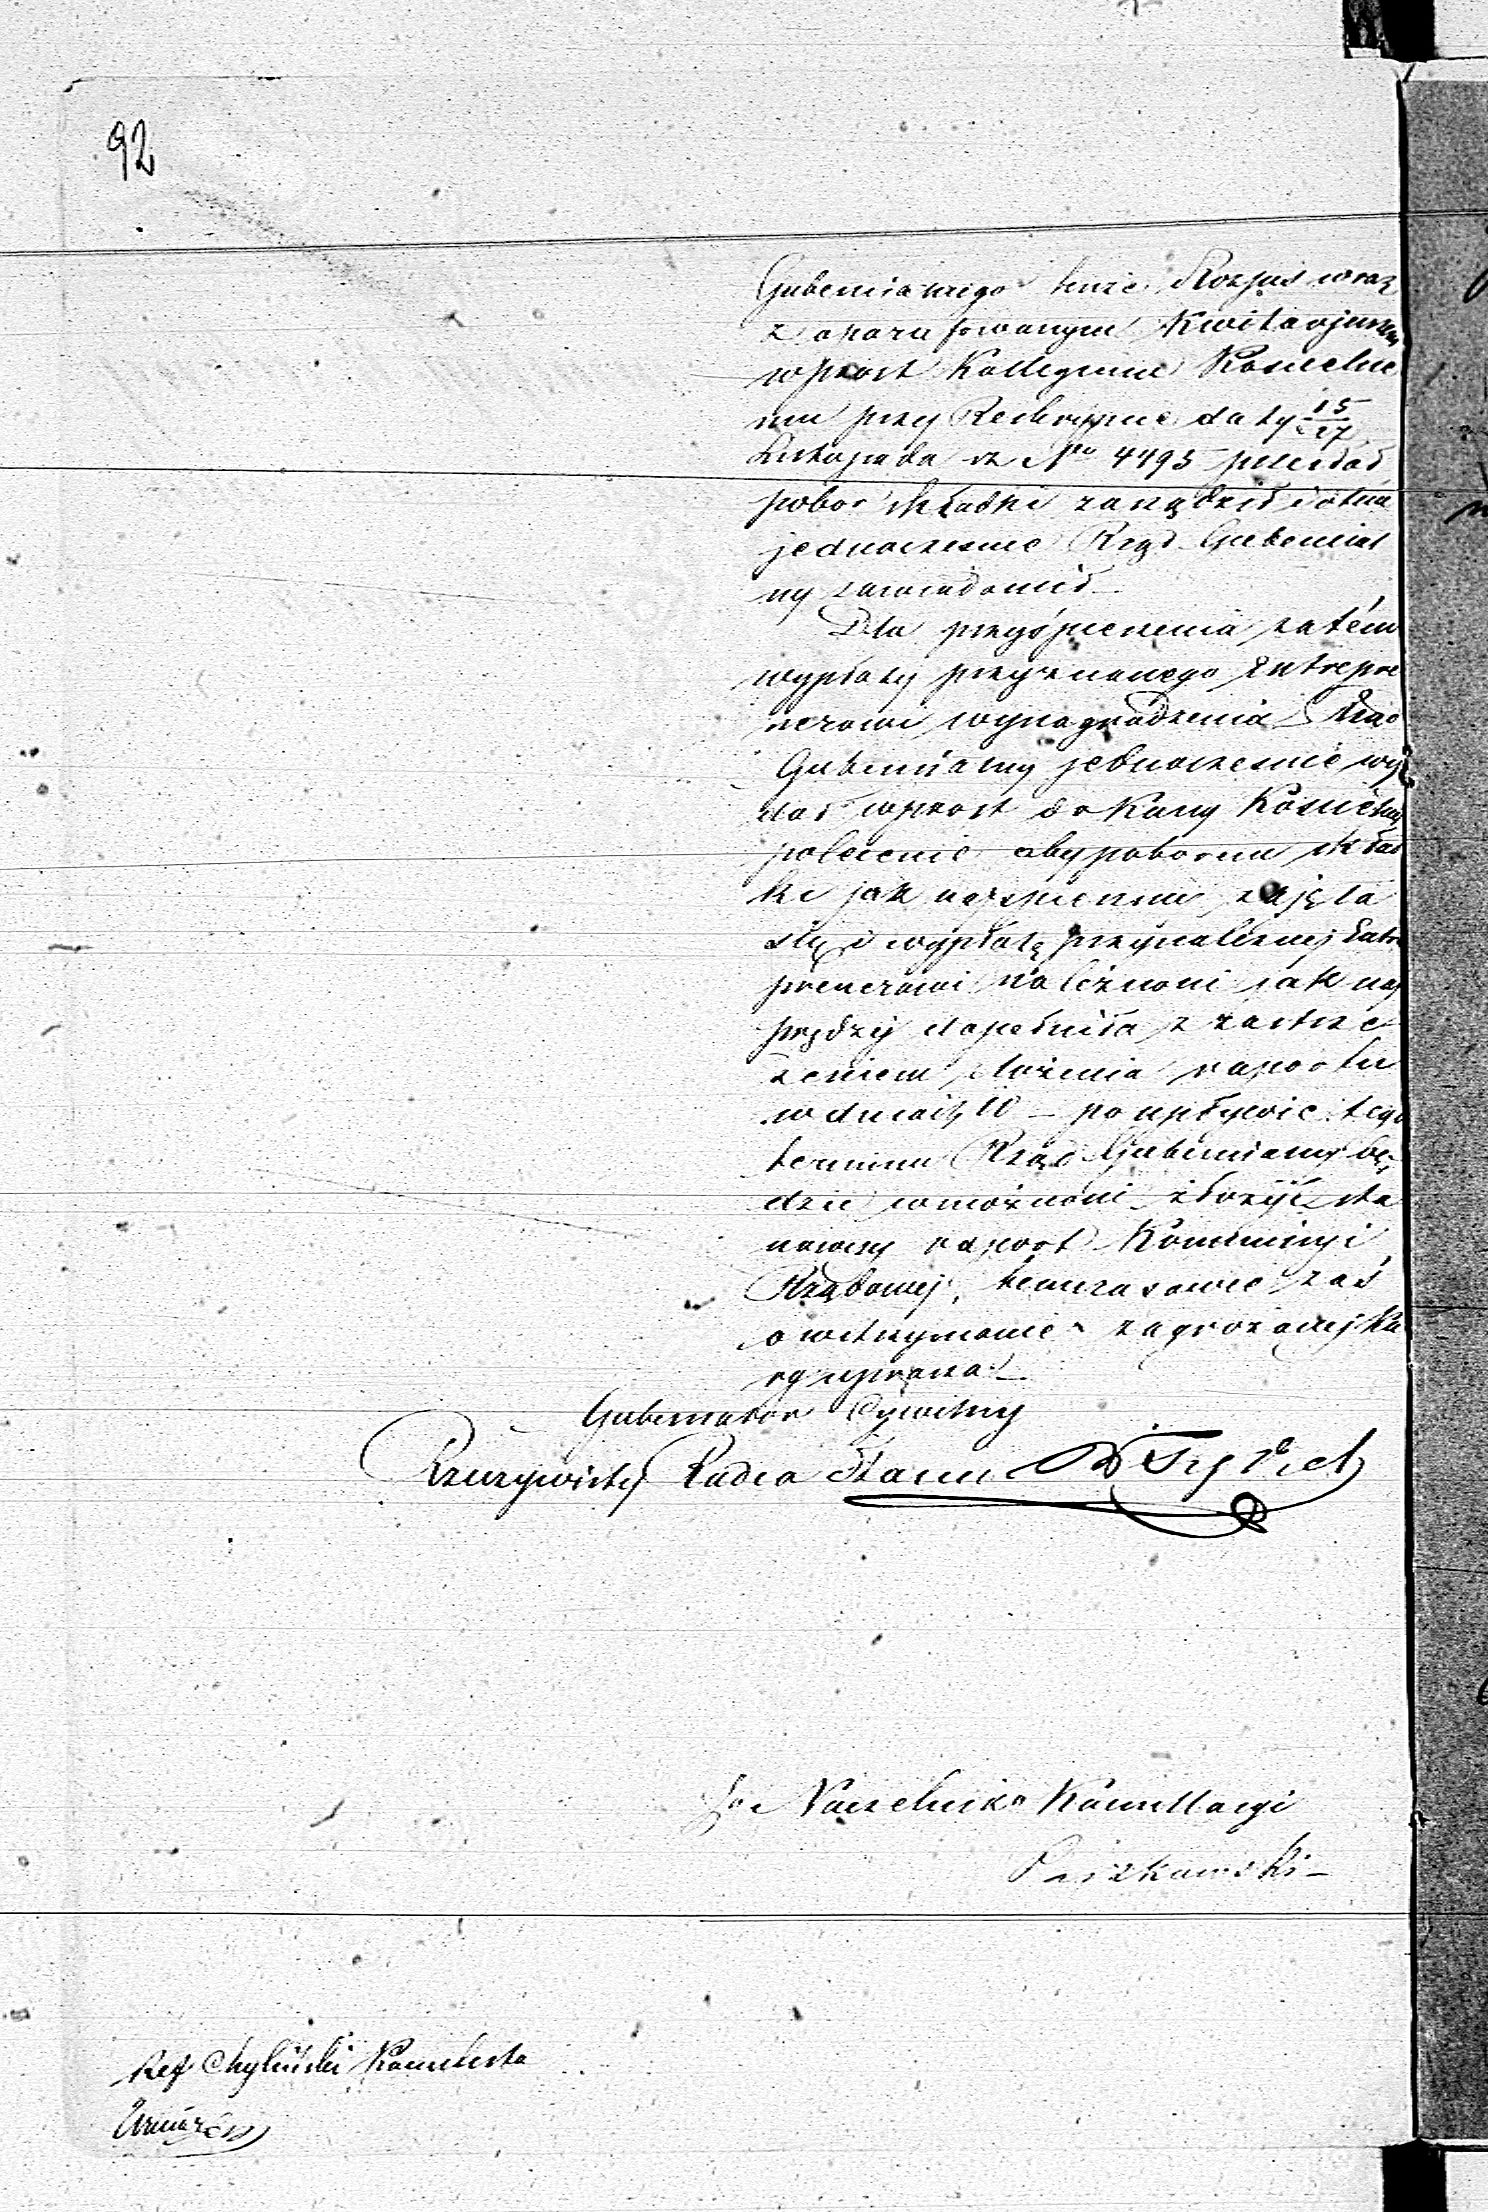 92
Gubernialnego tenże Rozpis wraz
z aparafowanym Kwitaryuszem
wprost Kollegium Kościelne
mu przy Reskrypcie daty 15/27
Listopada rb No 4495 przesłał
pobor składki zarządził i o tém
jednocześnie Rząd Gubernial
ny zawiadomił
Dla przyśpieszenia zatém
wypłaty przyznanego Entrepre
nerowi wynagrodzenia Rząd
Gubernialny jednocześnie wy
dał wprost do Kassy Kościelnej
polecenie aby poborem skład
ki jak najspieszniej zajęła
się i wypłatę przynależnej Entre
prenerowi należności jak naj
prędzej dopełniła z zastrze
żeniem złożenia raportu
w dniach 10 – po upływie tego
terminu Rząd Gubernialny bę
dzie w możności złożyć sta
nowczy raport Kommissyi
Rządowej, tymczasowie zaś
o wstrzymanie zagrożonej Ka
ry uprasza
Gubernator Cywilny
Rzeczywisty Radca Stanu
za Naczelnika Kancellaryi
Ref Chyliński